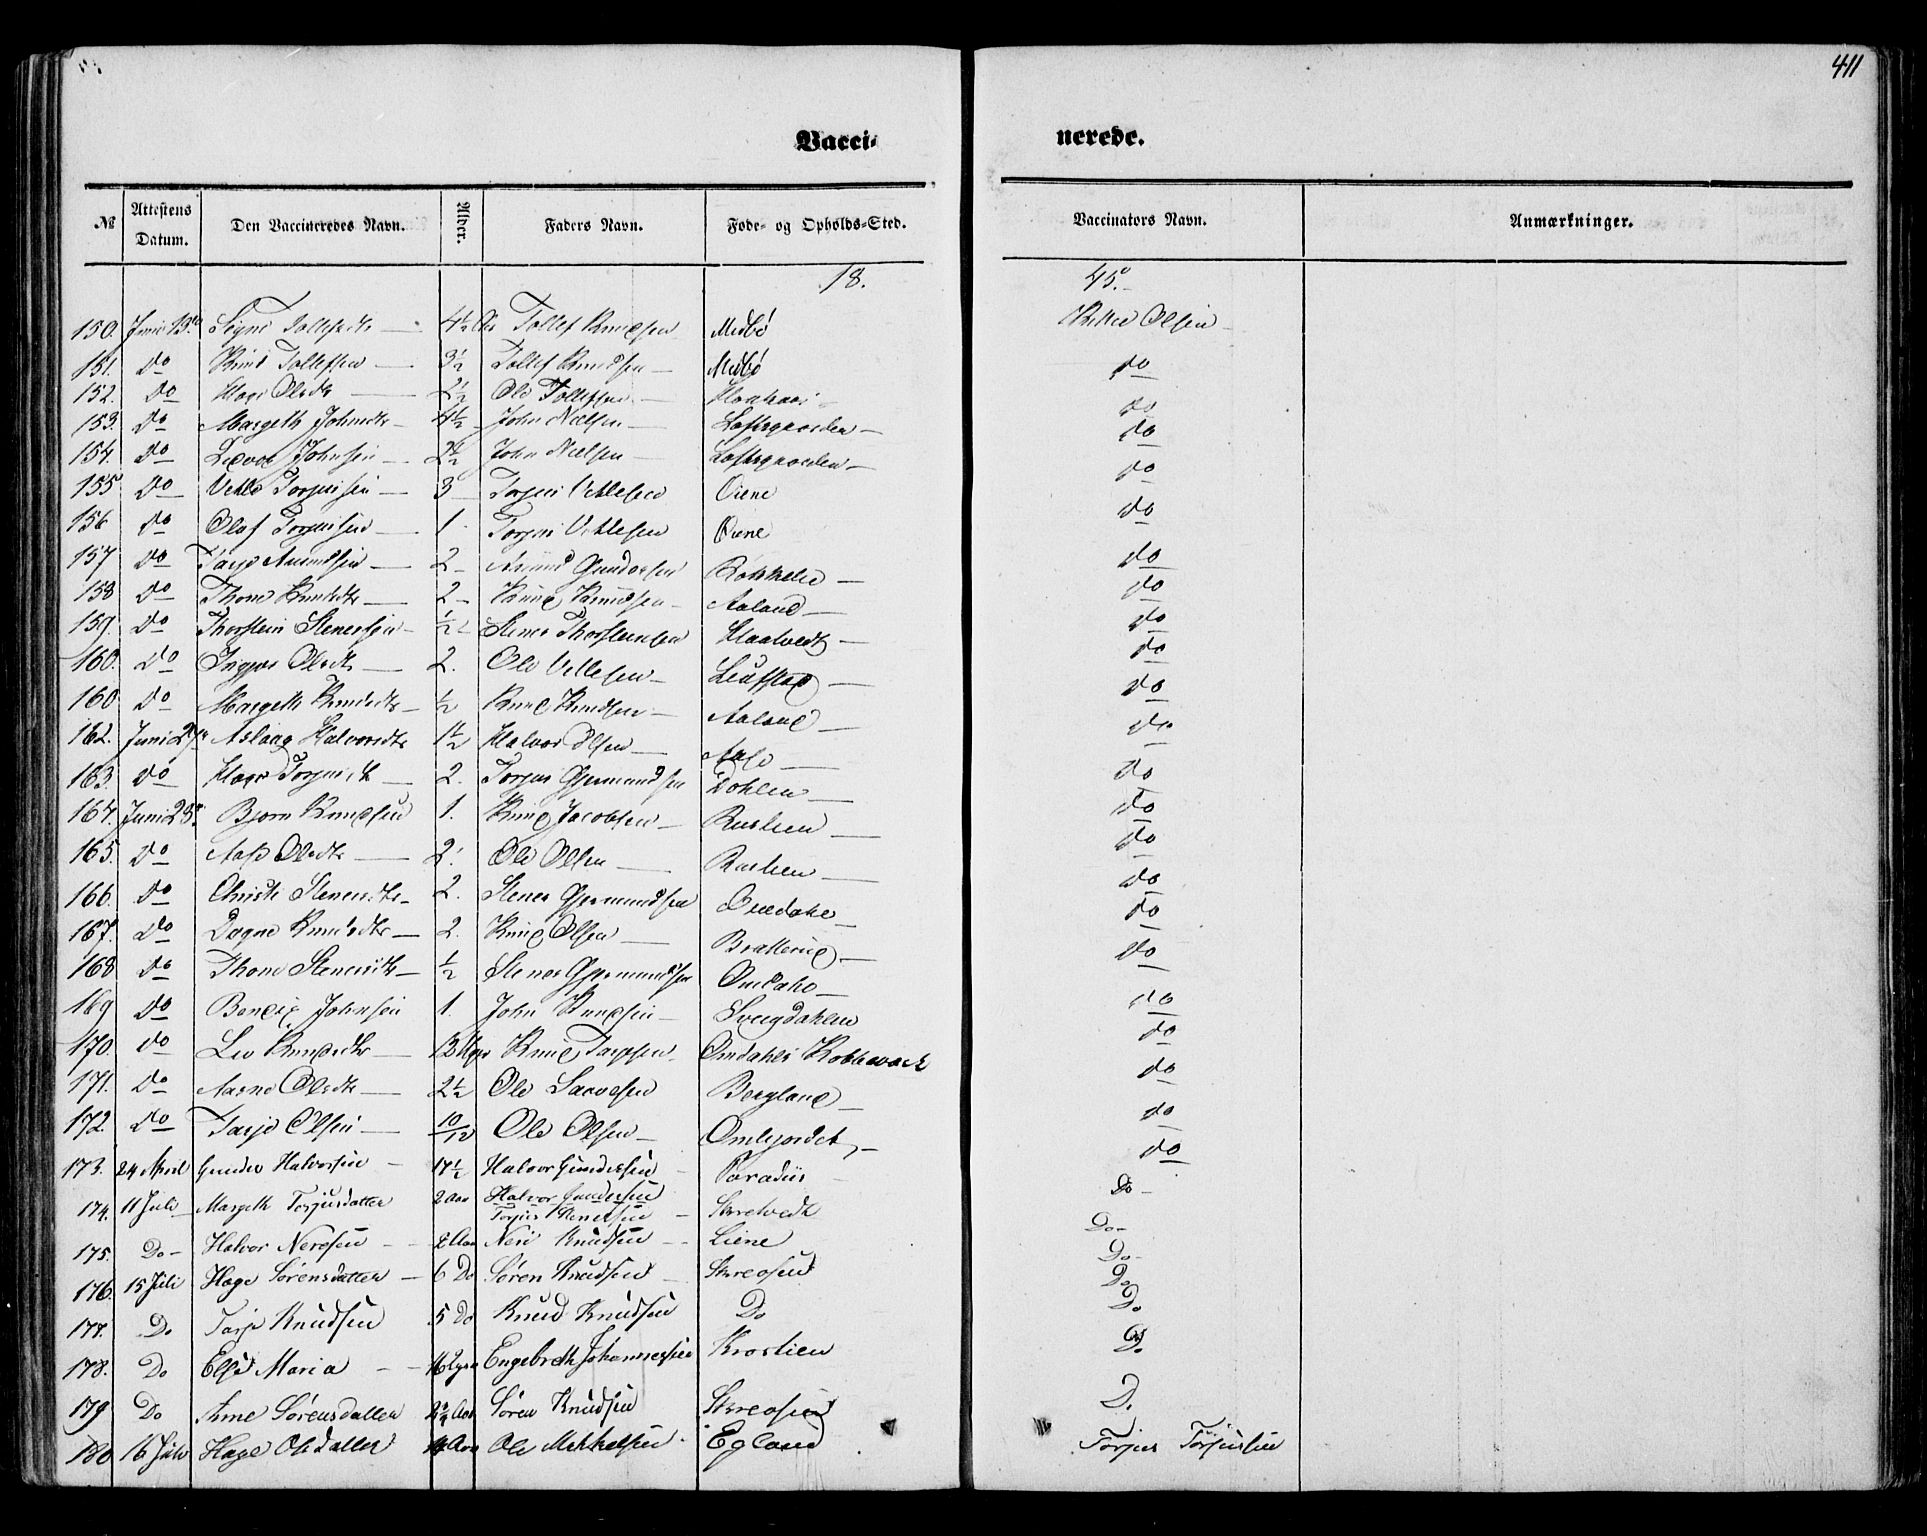 411
Vacci- nerede.
№ Attestens Datum. Den Vaccineredes Navn. Alder. Faders Navn. Føde- og Opholds-Sted. Vaccinators Navn. Anmærkninger.
18. 45.
150. Juni 13de Signe Tollefsdtr 4½ Aar Tollef Knudsen Midbö Olsen
151. do Knud Tollefsen 3½ Tollef Knudsen Midbö do
152. do Hage Olsdtr 2½ Ole Tollefsen do
153. do Margeth Johnsdtr 4½ John Nielsen Loftsgaarden do
154. do Johnsen 2½ John Nielsen Loftsgaarden do
155 do Vetle Torjussen 3 Torjus Vetlesen Öiene do
156 do Olaf Torjussen 1. Torjus Vetlesen Öiene do
157 do Tarje Aamundsen 2 Gundersen do
158 do Thone Knudsdtr 2 Knud Knudsen Aaland do
159. do Thorstein Stenersen ½ Stener Thorsteinsen Haatvedt do
160. do Olsdtr 2. Ole Vetlesen do
160. do Margeth Knudsdtr ½ Knud Knudsen Aaland do
162. Juni Aslaug Halvorsdtr 1½ Halvor Olsen do
163. do Hage Torjusdtr 2. Torjus Gjermundsen Dohlen do
164. Juni 25. Bjørn Knudsen 1. Knud Jacobsen do
165. do Aase Olsdtr 2. Ole Olsen do
166. do Christi Stenersdtr 2. Stener Gjermundsen Omdahl do
167. do Dagne Knudsdtr 2. Knud Olsen do
168 do Thone Stenersdtr ½ Stener Gjermundsen Omdahl do
169 do Bendix Johnsen 1. John Knudsen Svengdahlen do
170. do Liv Knudsdtr 13 Uger Knud Tarjesen Omdahls Kobberværk do
171. do Aasne Olsdtr 2½ Ole Saavesen Bergland do
172. do Tarje Olsen 10/12 Ole Olsen Omlijordet do
173. 24 April Gunder Halvorsen 17½ Halvor Gundersen Paradiis Do
174. 11 Juli Margeth Torjusdatter 2 Aar Halvor Gundersen Torjus Stenersen Do
175. Do Halvor Neresen 2 Aar Neri Knudsen Liene Do
176. 15 Juli Hage Sörensdatter 6 Do Sören Knudsen Do
177. Do Tarje Knudsen 5 Do Knud Knudsen Do Do
178. Do Else Maria 16 Ugen Engebreth Johannessen Kroslien Do
179 Do Anne Sörensdatter Aar Sören Knudsen D.
180 16 Juli Hage Olsdatter Aar Ole Mikkelsen Egland Torjus Torjussen